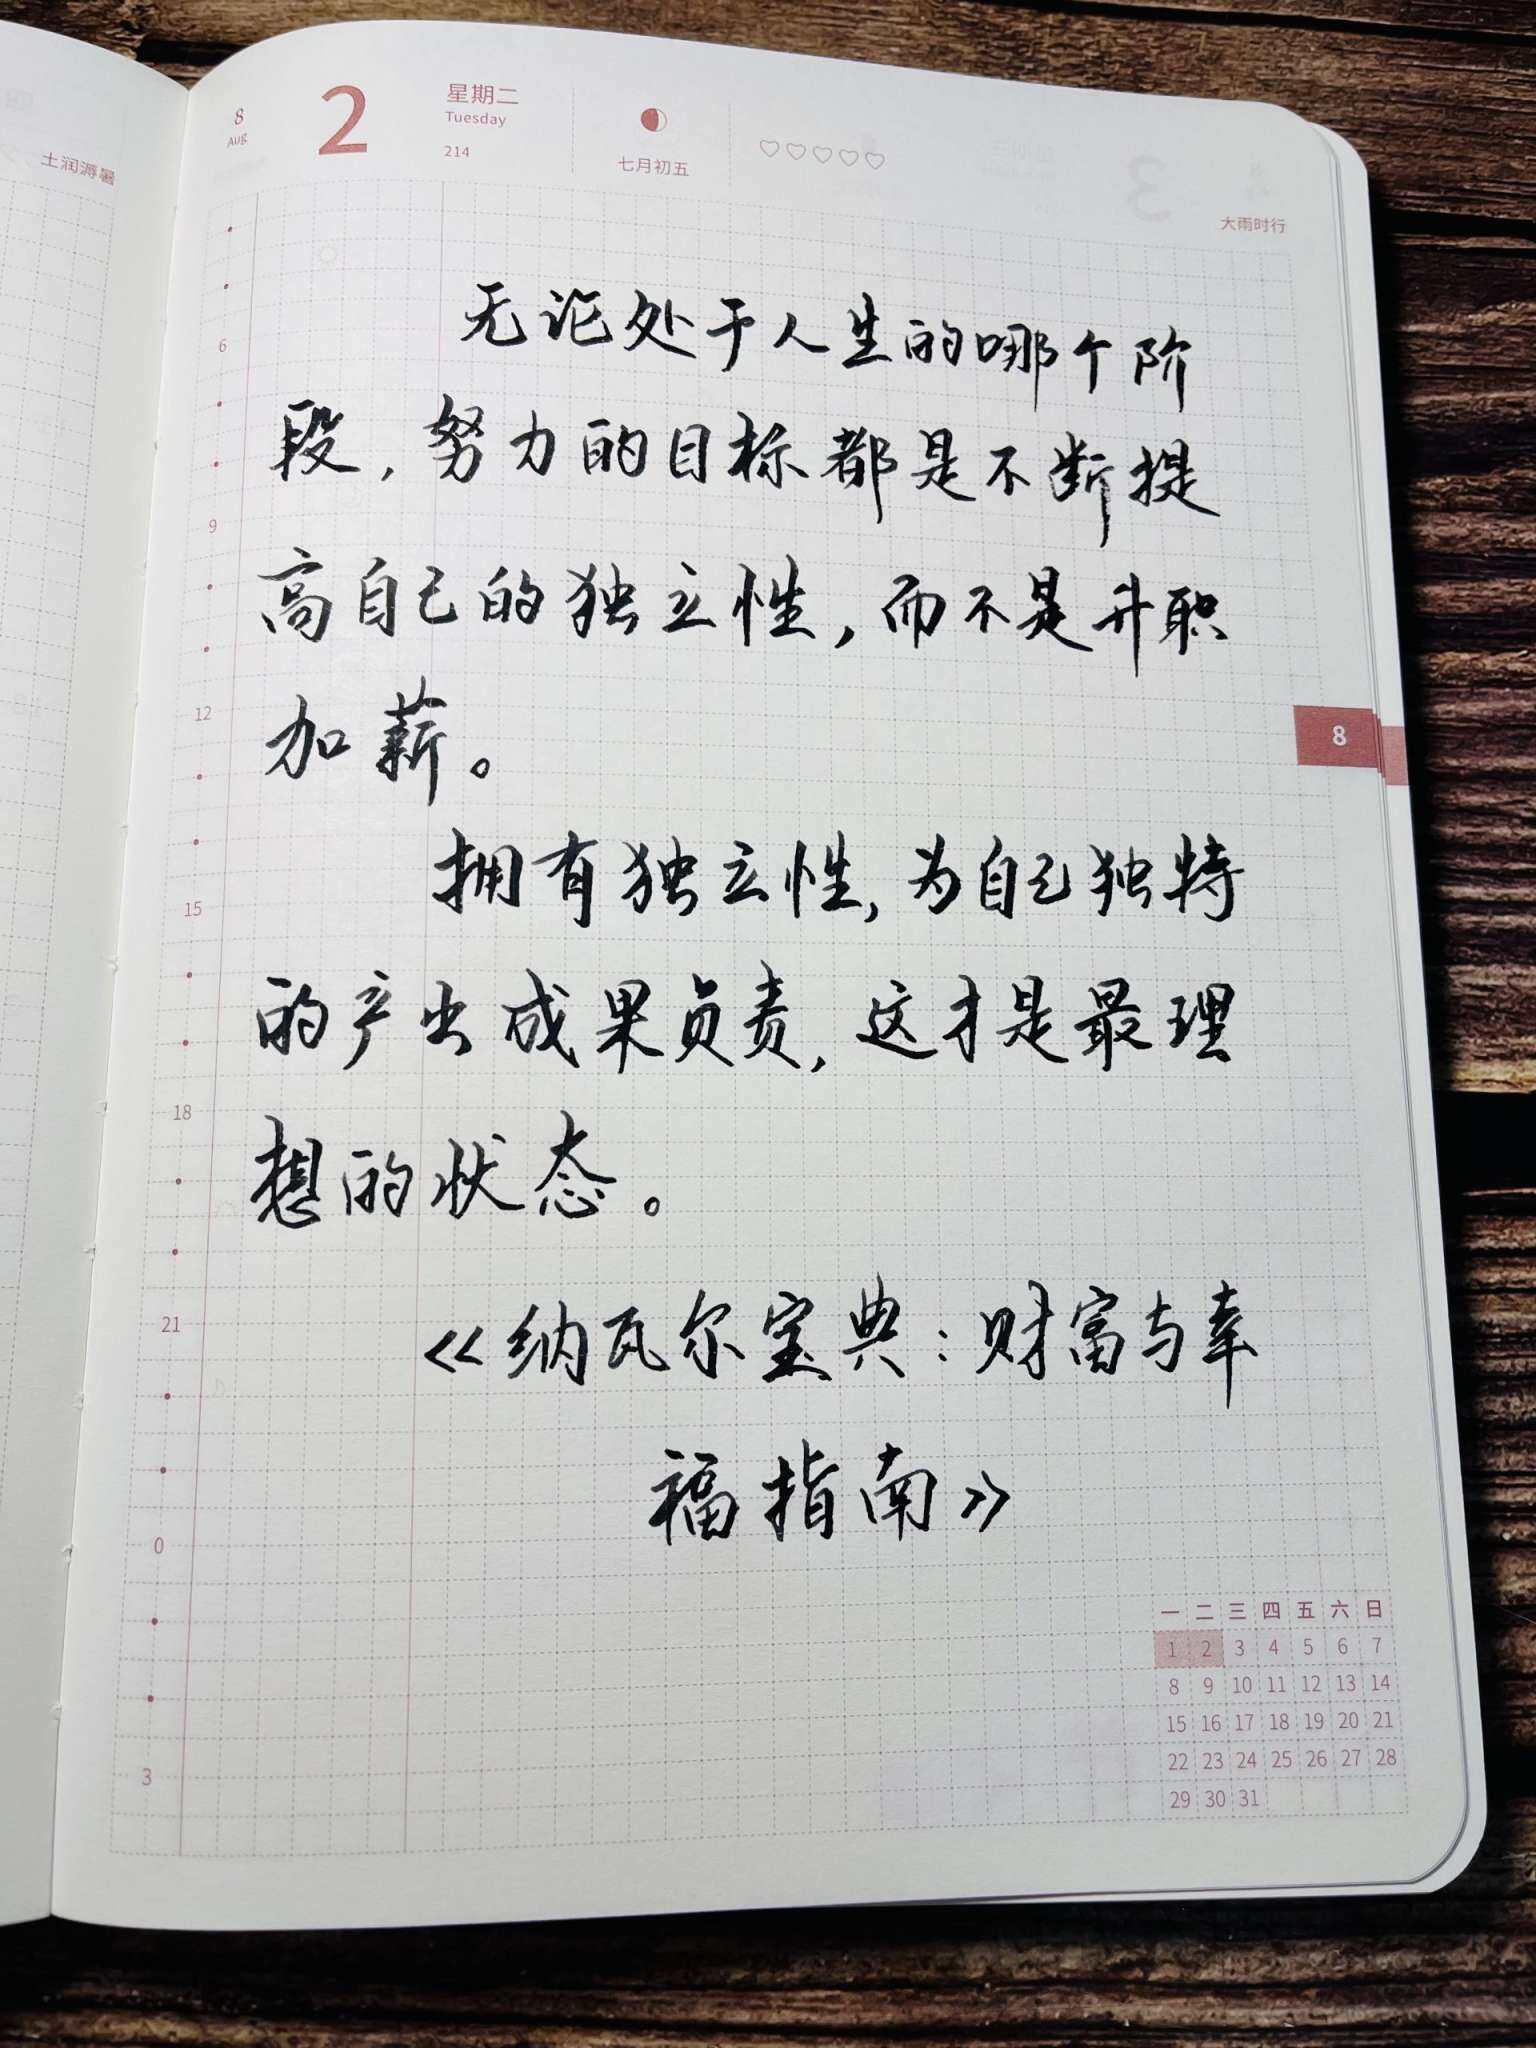 土润溽暑
8
AUG
2
星期二
Tuesday
214
七月初五
大雨时行
无论处于人生的哪个阶
段，努力的目标都是不断提
高自己的独立性，而不是升职
加薪。
拥有独立性，为自己独特
的产出成果负责，这才是最理
想的状态。
《纳瓦尔宝典：财富与幸
福指南》
6
9
12
15
18
21
0
3
8
一 二 三 四 五 六 日
1 2 3 4 5 6 7
8 9 10 11 12 13 14
15 16 17 18 19 20 21
22 23 24 25 26 27 28
29 30 31